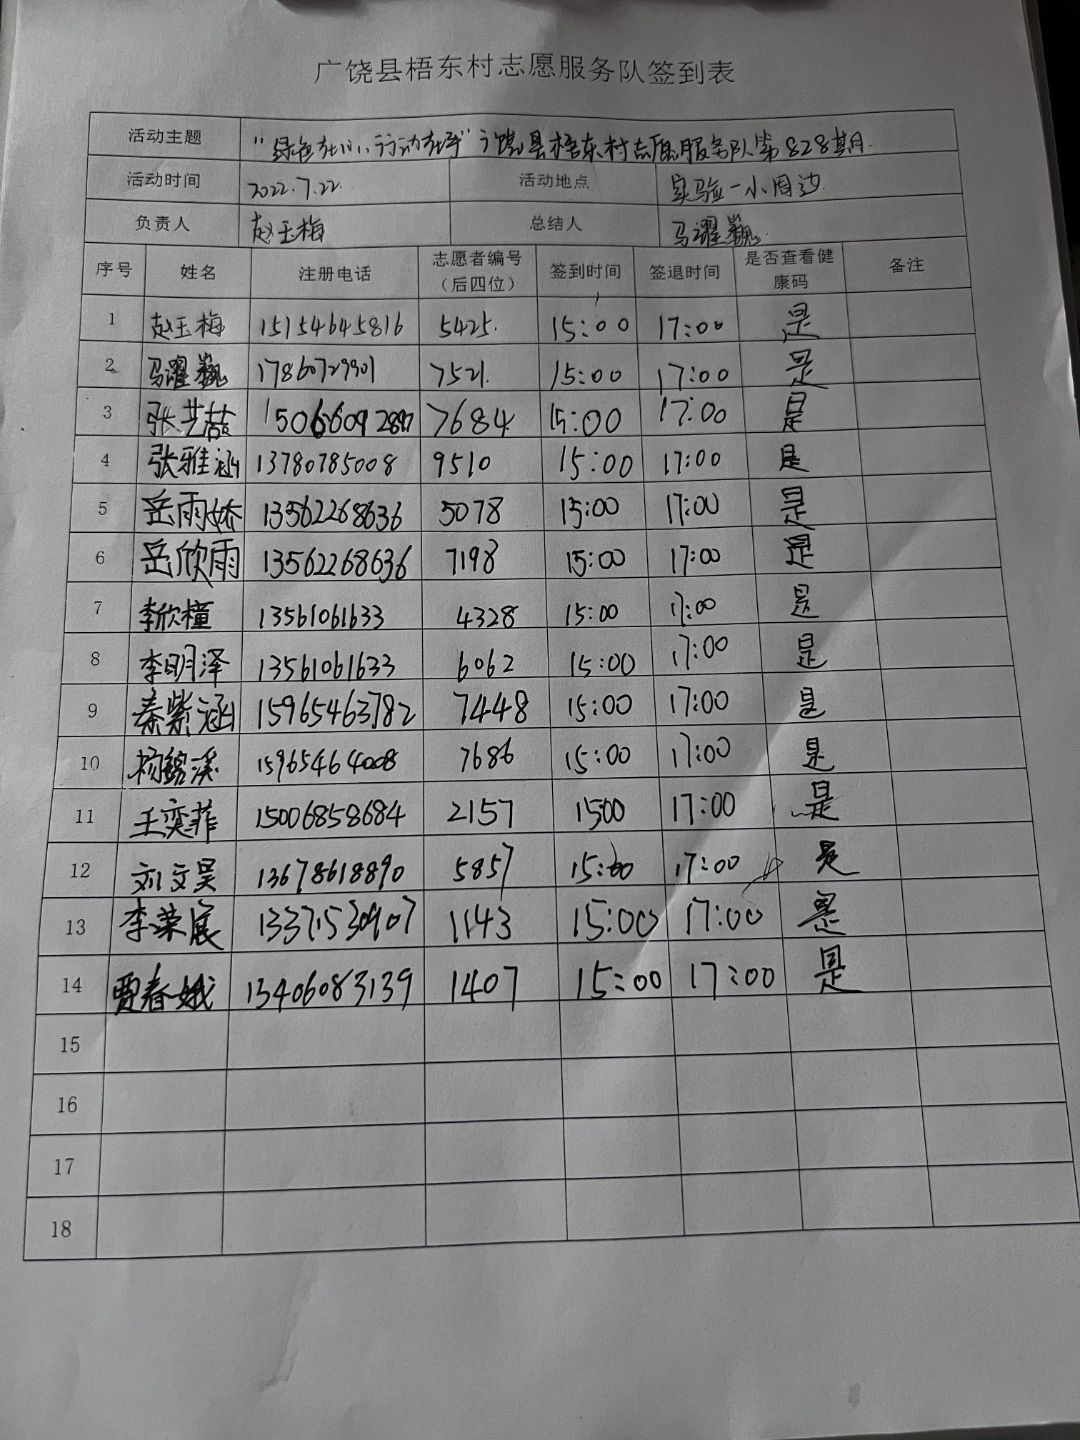 广饶县梧东村志愿服务队签到表
活动主题 "绿色在心，行动在手"广饶县梧东村志愿服务队第828期
活动时间 2022.7.22. 活动地点 实验一小周边
负责人 赵玉梅 总结人 马濯巍
序号 姓名 注册电话 志愿者编号（后四位） 签到时间 签退时间 是否查看健康码 备注
1 赵玉梅 15154645816 5425. 15:00 17:00 是
2 马濯巍 17860729901 7521. 15:00 17:00 是
3 张艺喆 7684 15:00 17:00 是
4 张雅涵 13780785008 9510 15:00 17:00 是
5 岳雨娇 13562268636 5078 15:00 17:00 是
6 岳欣雨 13562268636 7198 15:00 17:00 是
7 李欣橦 13561061633 4328 15:00 17:00 是
8 李明泽 13561061633 6062 15:00 17:00 是
9 秦紫涵 15965463782 7448 15:00 17:00 是
10 杨铭溪 15965464008 7686 15:00 17:00 是
11 王奕菲 15006858684 2157 1500 17:00 是
12 刘文昊 13678618890 5857 15:00 17:00 是
13 李荣展 13371530907 1143 15:00 17:00 是
14 贾春娥 13406083139 1407 15:00 17:00 是
15
16
17
18